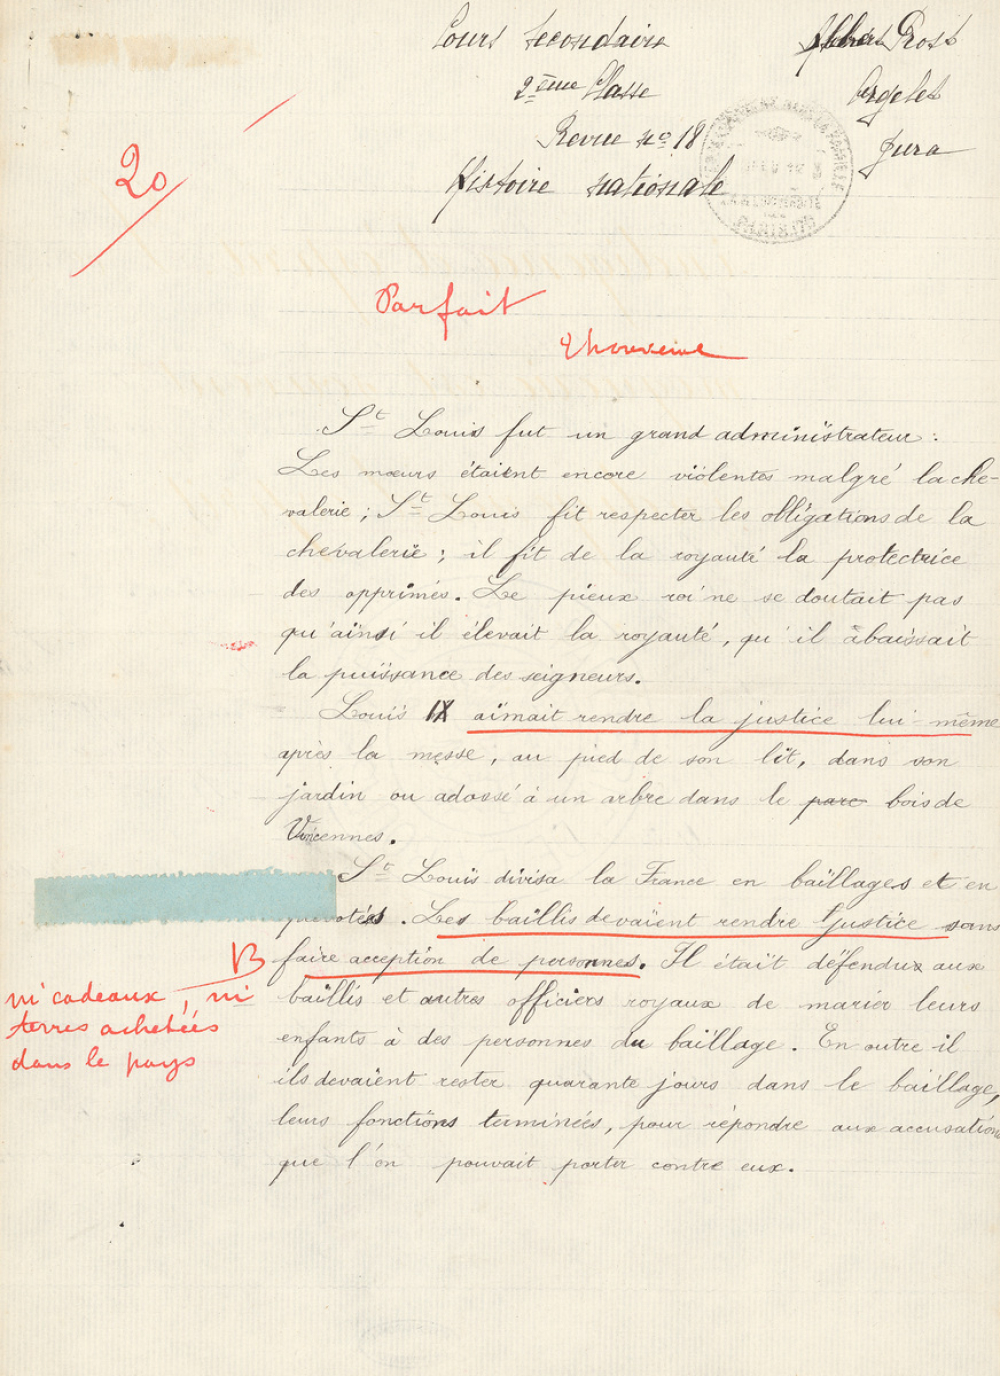 Cours Secondaire
Prost
2ème Classe
Orgelet
Revue No 18
Jura
Histoire nationale
20
Parfait
St Louis fut un grand administrateur :
Les mœurs étaient encore violentes malgré la che-
valerie ; St Louis fit respecter les obligations de la
chevalerie ; il fit de la royauté la protectrice
des opprimés. Le pieux roi ne se doutait pas
qu'ainsi il élevait la royauté, qu'il abaissait
la puissance des seigneurs.
Louis IX aimait rendre la justice lui-même
après la messe, au pied de son lit, dans son
jardin ou adossé à un arbre dans le parc bois de
Vincennes.
St Louis divisa la France en baillages et en
prévotés. Les baillis devaient rendre justice sans
B faire acception de personnes. Il était défendu aux
ni cadeaux, ni
baillis et autres officiers royaux de marier leurs
terres achetées
enfants à des personnes du baillage. En outre il
dans le pays
ils devaient rester quarante jours dans le baillage,
leurs fonctions terminées, pour répondre aux accusations
que l'on pouvait porter contre eux.